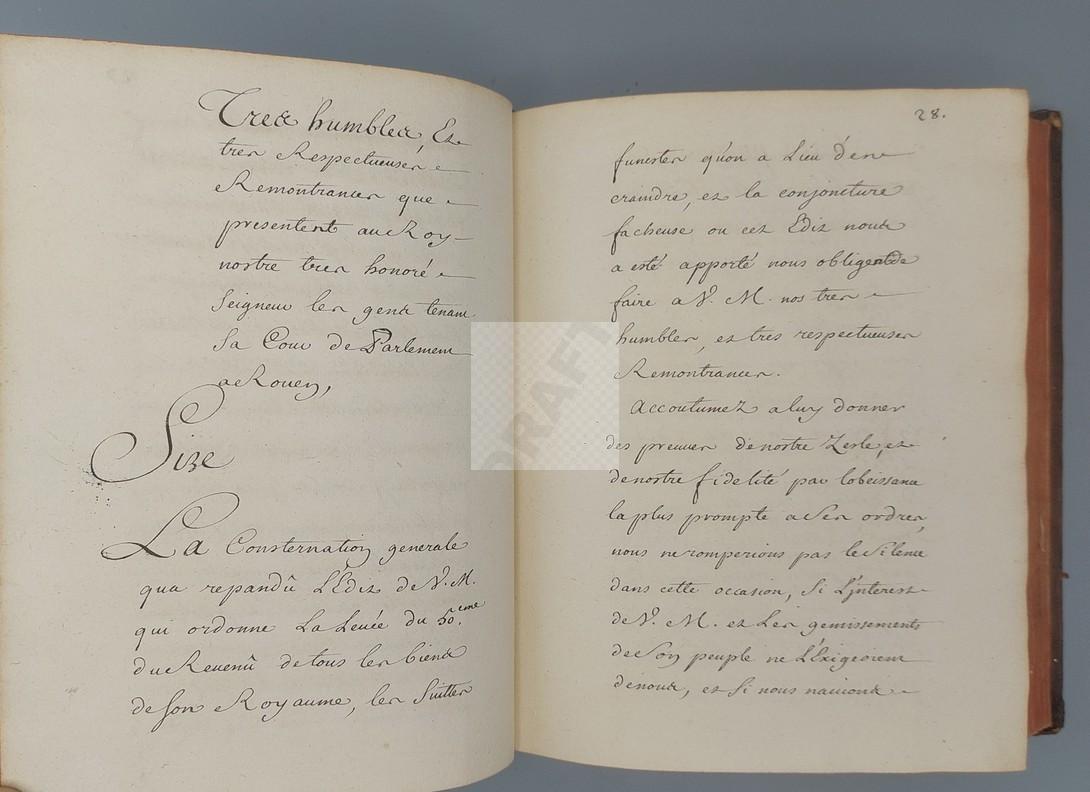 Tres humbles, Et
tres Respectueuses
Remontrances que
presentent au Roy
nostre tres honoré
Seigneur les gens tenant
Sa Cour de Parlement
a Rouen,
Sire
La Consternation generale
qua repandû L'Edit de V. M.
qui ordonne La Levée du 50.eme
du Revenû de tous les biens
de son Royaume, les Suittes
28.
funestes qu'on a Lieu d'en
craindre, et la conjoncture
facheuse ou cet Edit nous
a esté apporté nous obligent de
faire a V. M. nos tres
humbles, et tres respectueuses
Remontrances.
Accoutumez a luy donner
des preuves de nostre Zesle, et
de nostre fidelité par lobeissance
la plus prompte a Ses ordres,
nous ne romperions pas le Silence
dans cette occasion, Si L'jnterest
de V. M. et Les gemissements
de Son peuple ne L'Exigeoient
de nous, et Si nous navions
DRAFT